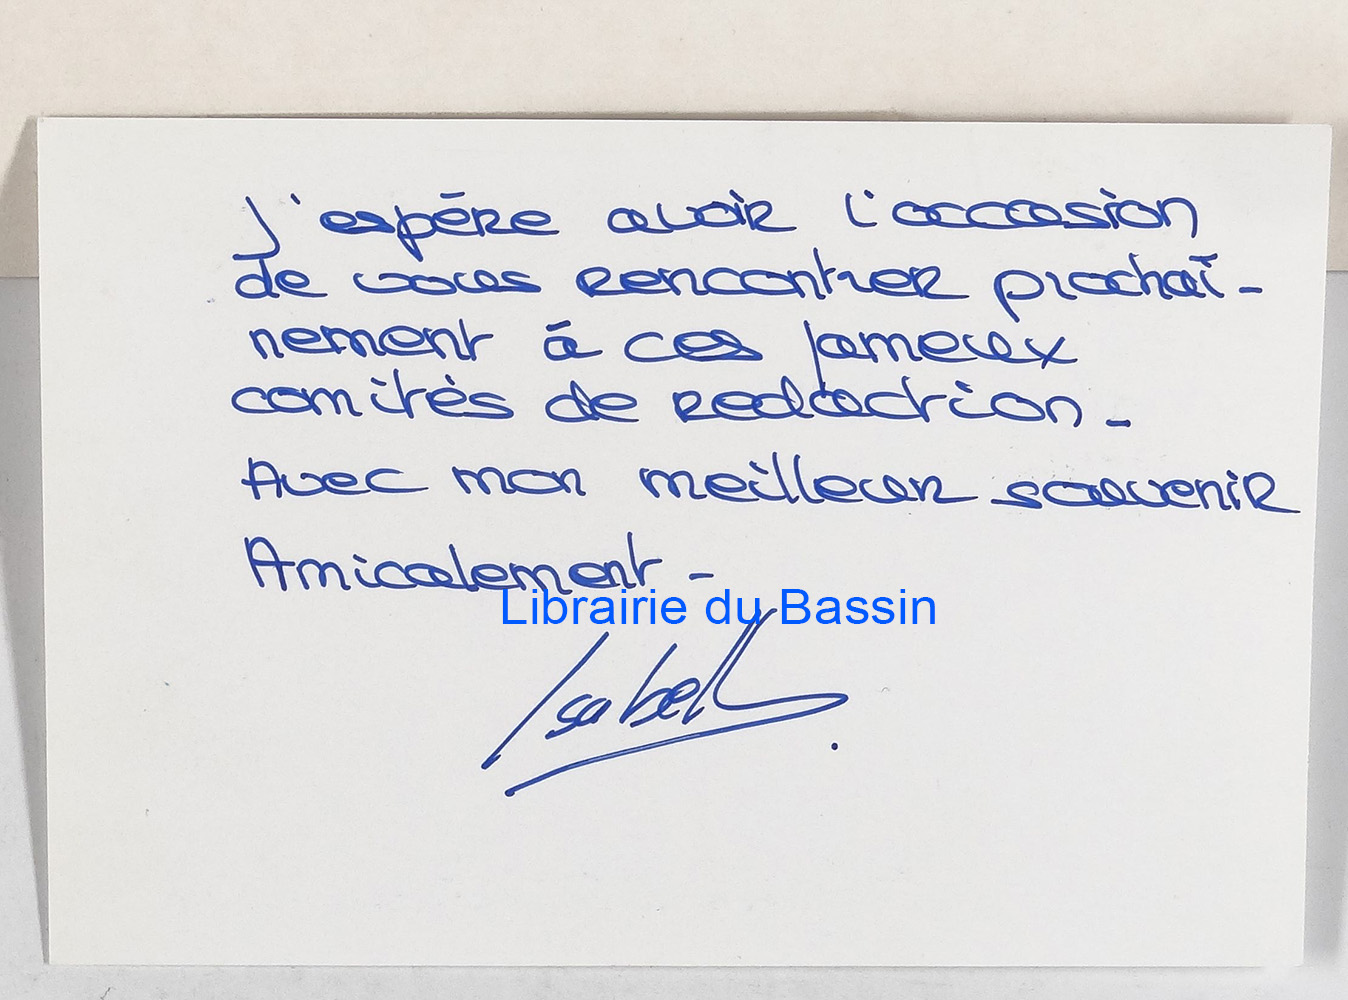 J'espère avoir l'occasion
de vous rencontrer prochaî-
nement à ces fameux
comités de redaction -
Avec mon meilleur souvenir
Amicalement -
Librairie du Bassin
Isabelle